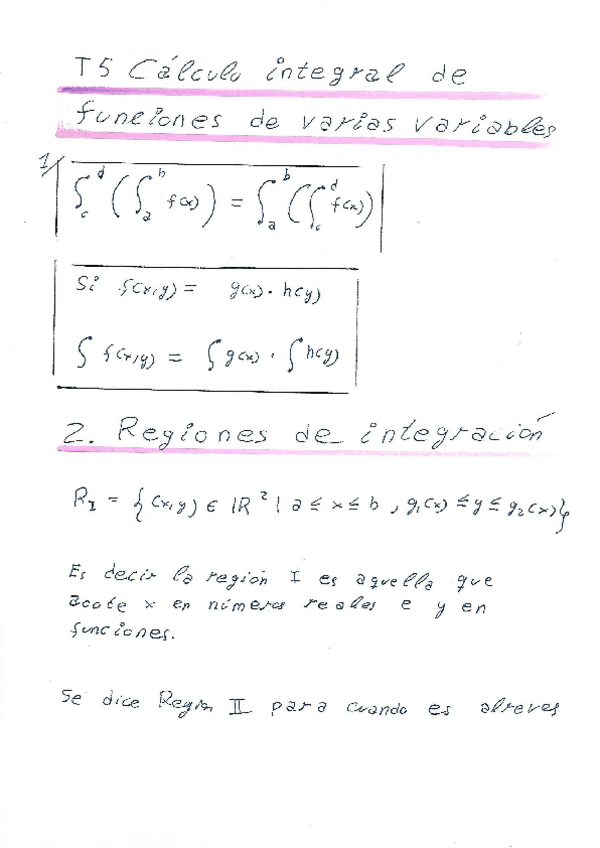 T5 Cálculo integral de
funciones de varias variables
1/
∫_c^d (∫_a^b f(x)) = ∫_a^b (∫_c^d f(x))
Si f(x,y) = g(x) · h(y)
∫ f(x,y) = ∫ g(x) · ∫ h(y)
2. Regiones de integración
R_I = { (x,y) ∈ IR² | a ≤ x ≤ b , g₁(x) ≤ y ≤ g₂(x)}
Es decir la región I es aquella que
acote x en números reales e y en
funciones.
Se dice Región II para cuando es alreves